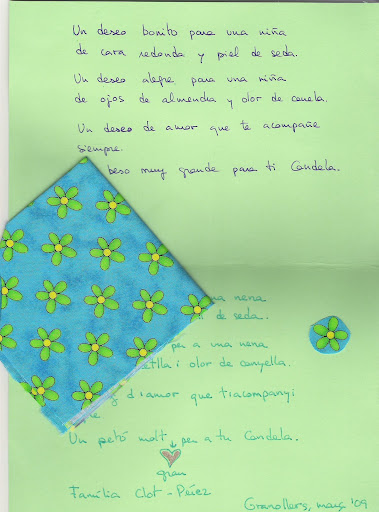 Un deseo bonito para una niña
de cara redonda y piel de seda.
Un deseo alegre para una niña
de ojos de almendra y olor de canela.
Un deseo de amor que te acompañe
siempre.
beso muy grande para ti Candela.
una nena
de seda.
per a una nena
i olor de canyella.
d'amor que t'acompanyi
Un petó molt per a tu Candela.
gran
Família Clot-Pérez
Granollers, març '09